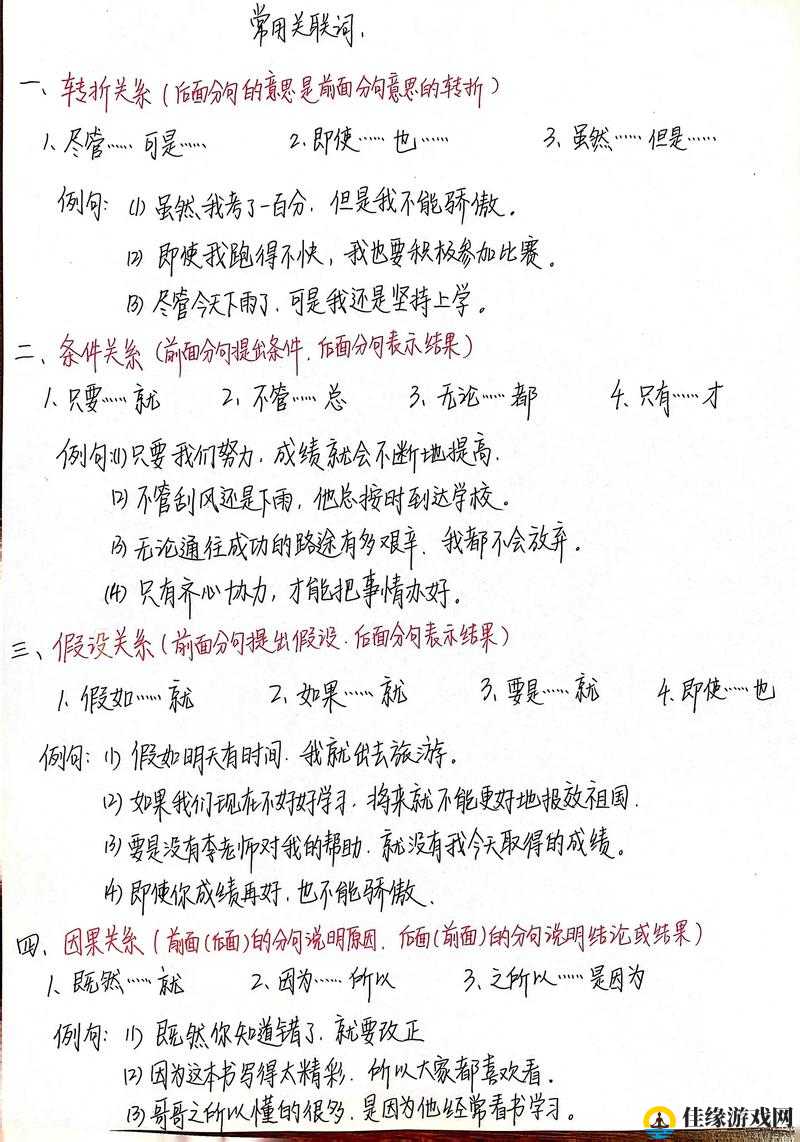 常用关联词,
一、转折关系(后面分句的意思是前面分句意思的转折)
1、尽管…… 可是…… 2、即使…… 也…… 3、虽然…… 但是……
例句: (1) 虽然我考了一百分, 但是我不能骄傲。
(2) 即使我跑得不快, 我也要积极参加比赛。
(3) 尽管今天下雨了, 可是我还是坚持上学。
二、条件关系(前面分句提出条件, 后面分句表示结果)
1、只要…… 就 2、不管…… 总 3、无论…… 都 4、只有…… 才
例句:(1)只要我们努力, 成绩就会不断地提高.
(2) 不管刮风还是下雨, 他总按时到达学校。
(3) 无论通往成功的路途有多艰辛, 我都不会放弃。
(4) 只有齐心协力, 才能把事情办好。
三、假设关系(前面分句提出假设, 后面分句表示结果)
1、假如…… 就 2、如果…… 就 3、要是…… 就 4、即使…… 也
例句: (1) 假如明天有时间, 我就出去旅游。
(2) 如果我们现在不好好学习, 将来就不能更好地报效祖国.
(3) 要是没有李老师对我的帮助, 就没有我今天取得的成绩。
(4) 即使你成绩再好, 也不能骄傲.
四、因果关系(前面(后面)的分句说明原因, 后面(前面)的分句说明结论或结果)
1、既然…… 就 2、因为…… 所以 3、之所以…… 是因为
例句: (1) 既然你知道错了, 就要改正
(2) 因为这本书写得太精彩, 所以大家都喜欢看.
(3) 哥哥之所以懂的很多, 是因为他经常看书学习。
佳缘游戏网